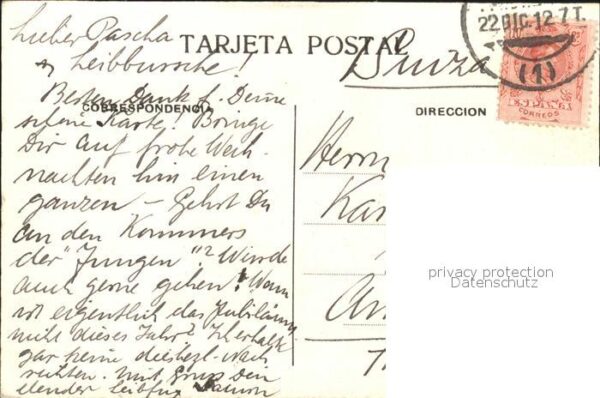 Lieber Pascha
TARJETA POSTAL
22 DIC. 12 7 T.
(1)
u. Leibbursche!
Suiza
ESPAÑA
CORREOS
CORRESPONDENCIA
DIRECCION
Besten Dank f. Deine
schöne Karte! Bringe
Dir auf frohe Weih-
nachten hin einen
ganzen – Gehst Du
an den Kommers
der "Jungen"? Würde
auch gerne gehen! Wann
ist eigentlich das Jubiläum
nicht dieses Jahr? Ich erhalte
gar keine diesbezl. Nach
richten. Mit Gruss Dein
Leibfux
Herrn
Kar
privacy protection
Datenschutz